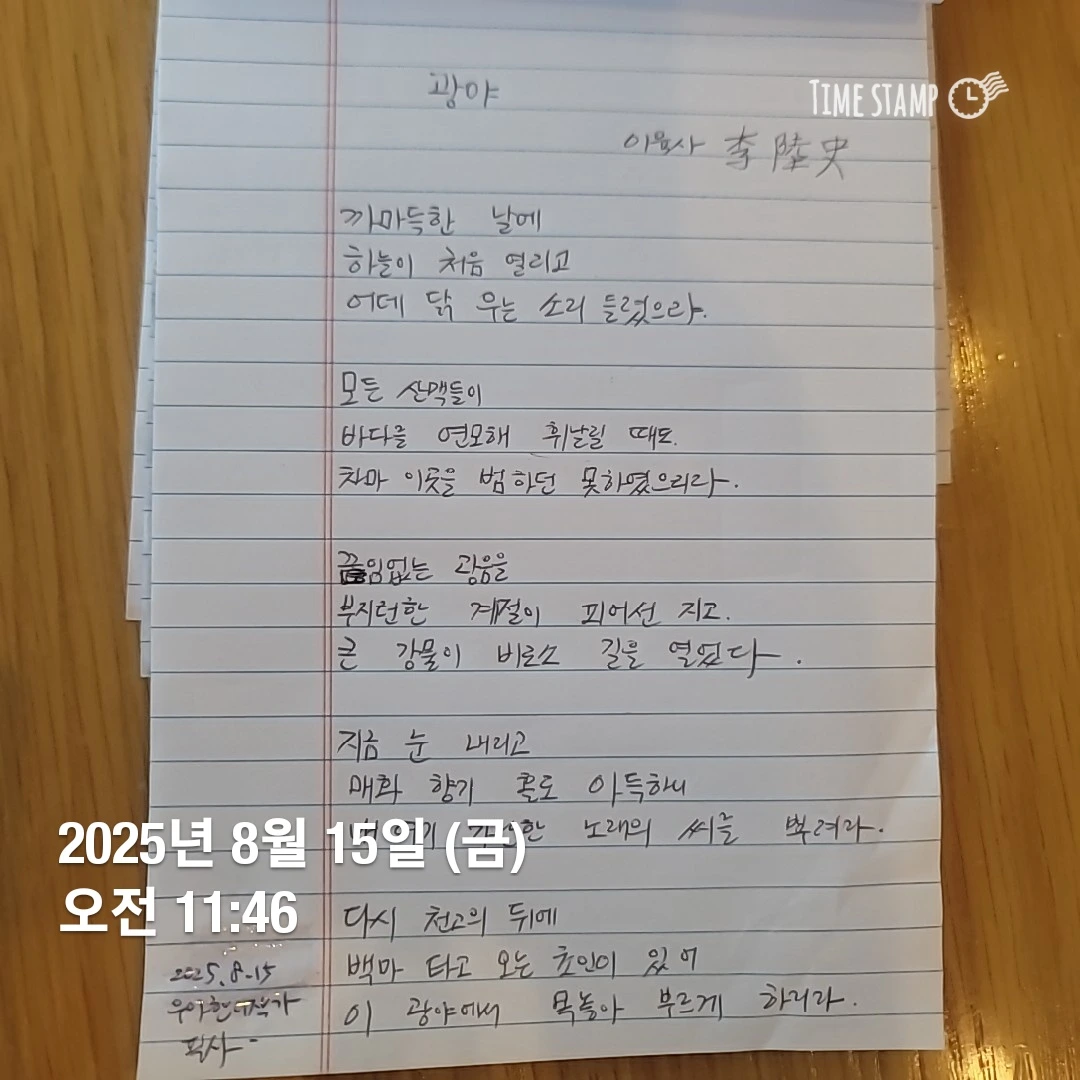 광야
TIME STAMP
이육사 李陸史
까마득한 날에
하늘이 처음 열리고
어데 닭 우는 소리 들렸으랴.
모든 산맥들이
바다를 연모해 휘날릴 때도.
차마 이곳을 범하던 못하였으리라.
끊임없는 광음을
부지런한 계절이 피어선 지고.
큰 강물이 비로소 길을 열었다.
지금 눈 내리고
매화 향기 홀로 아득하니
노래의 씨를 뿌려라.
2025년 8월 15일 (금)
오전 11:46
다시 천고의 뒤에
백마 타고 오는 초인이 있어
이 광야에서 목놓아 부르게 하리라.
2025. 8. 15
필사